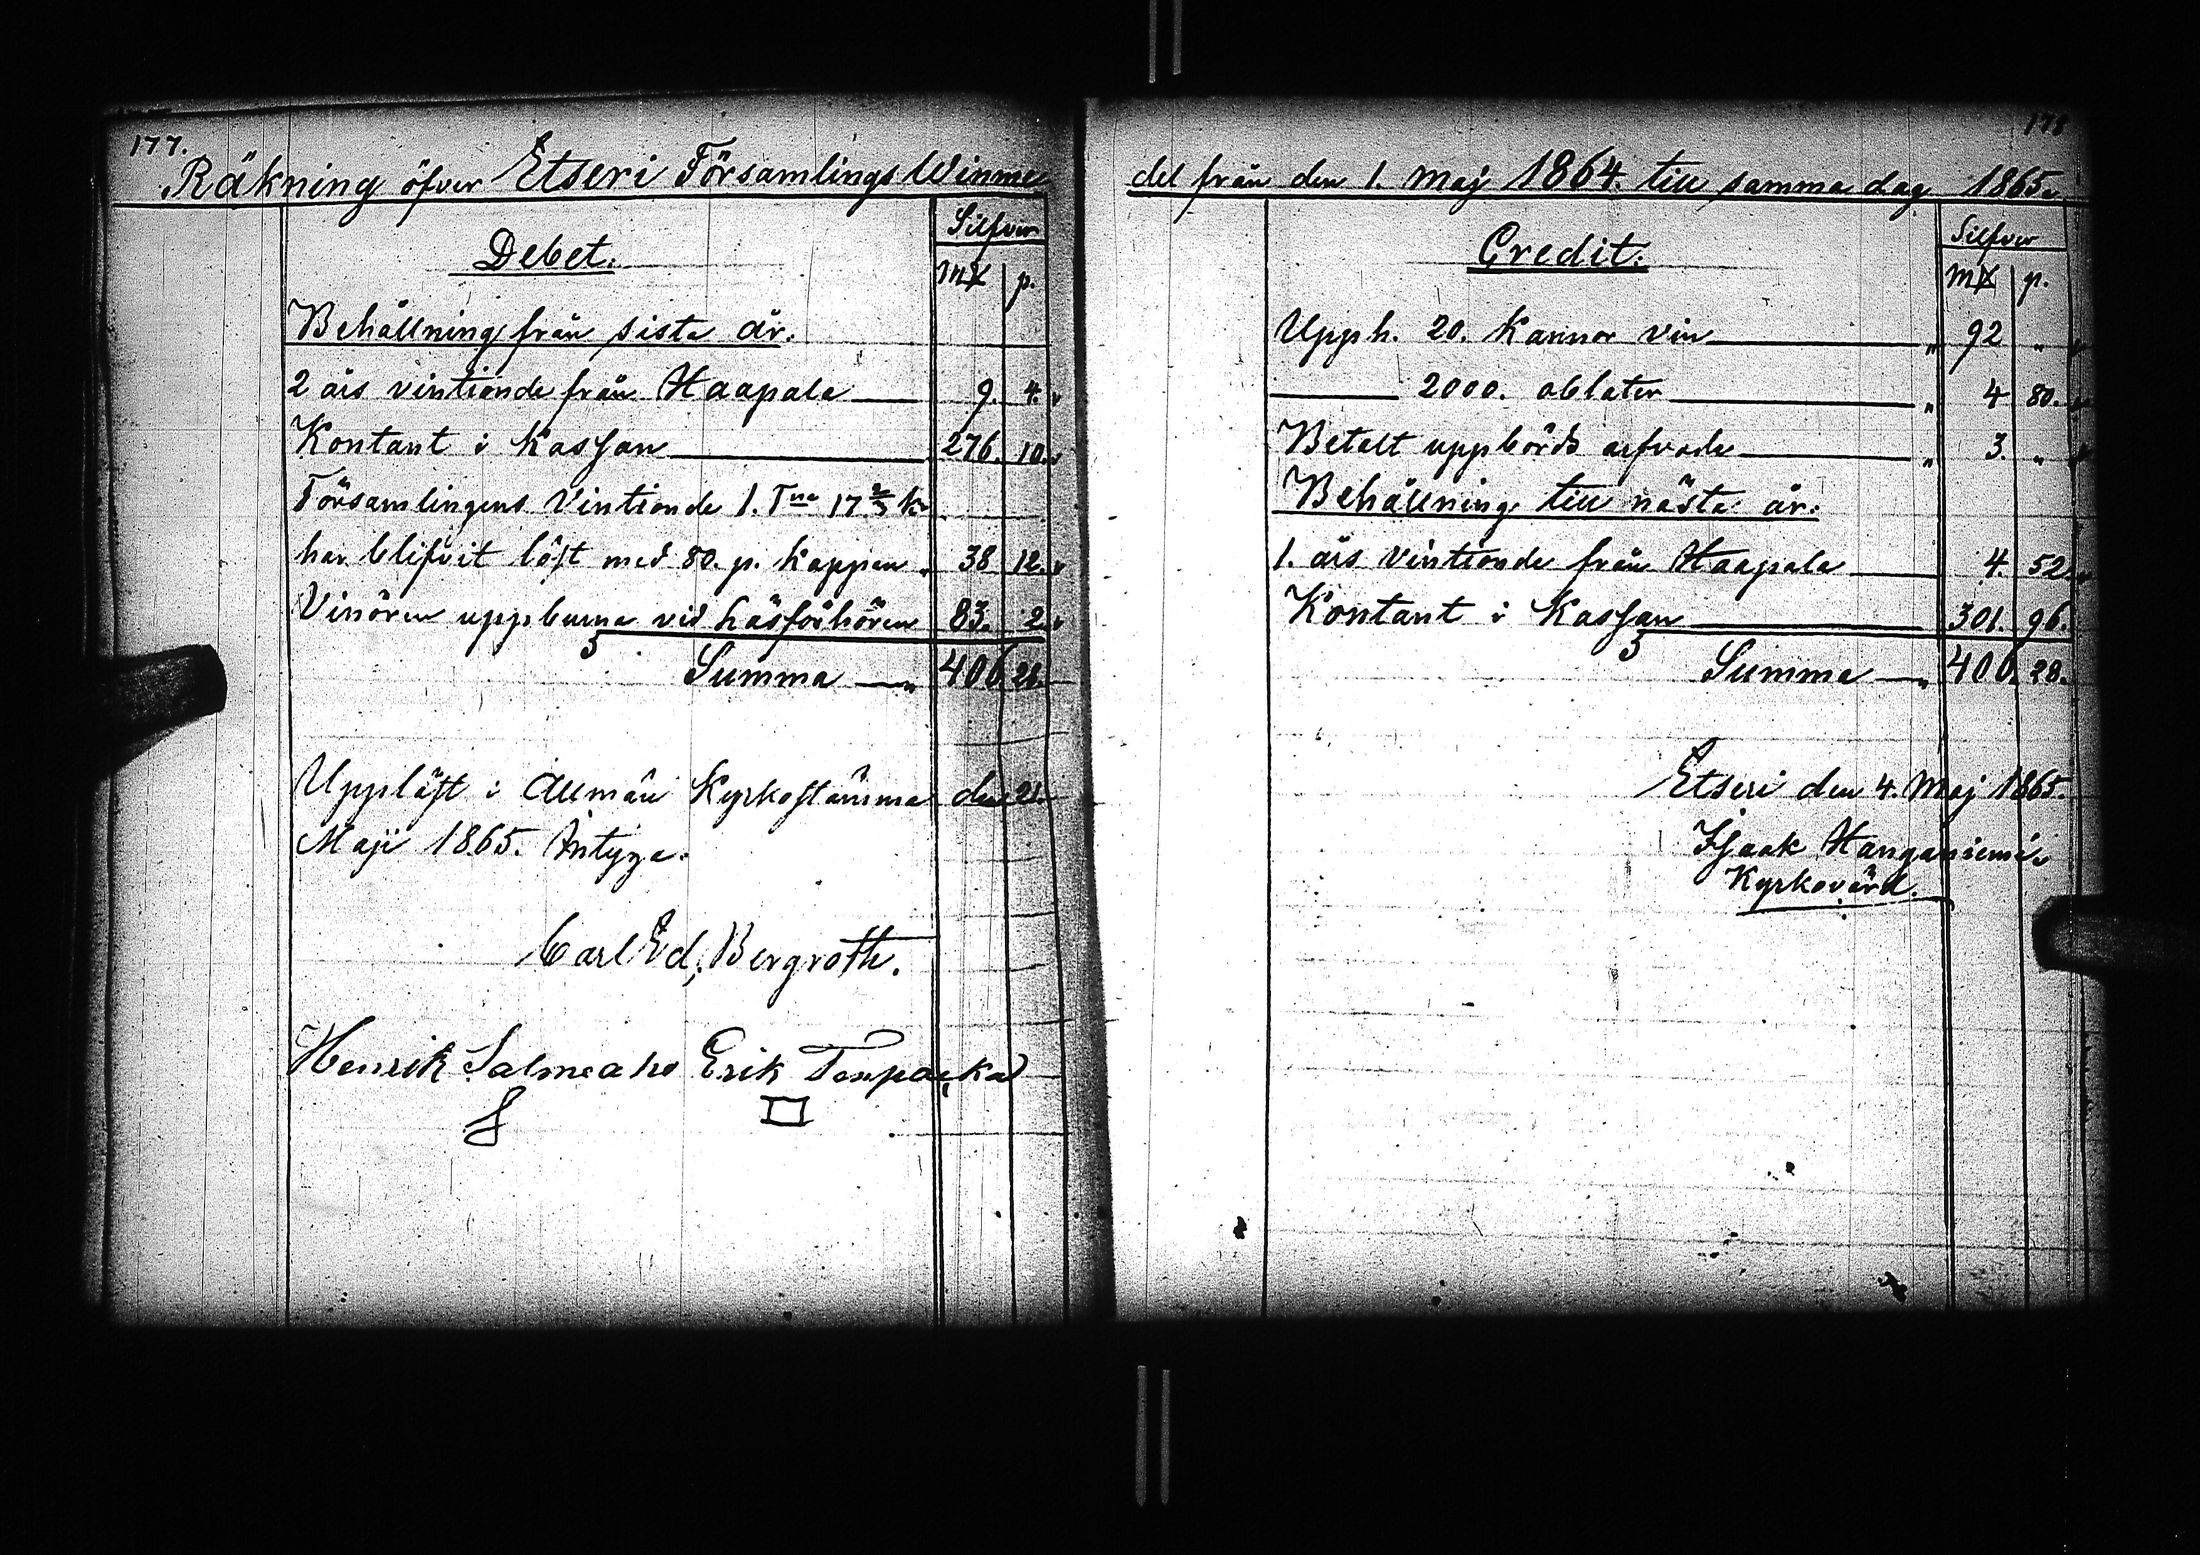 177.
Räkning öfver Etseri Församlings Winme
Debet.
Silfver
Mk p.
Behållning från sista år.
2 års vintionde från Haapala 9. 4.
Kontant i Kassan 276. 10.
Församlingens Vintionde 1. Tna 17 2/3 kr
har blifvit löst med 80. p. Kappen " 38 12.
Vinören uppburna vid Läsförhören 83. 2.
Summa " 406 28.
Uppläst i Allmän Kyrkostämma den 21.
Maji 1865. Intyga.
Carl Ed. Bergroth.
Henrik Salmeaho Erik
178
del från den 1. Maj 1864. till samma dag 1865.
Credit.
Silfver
Mk p.
Upph. 20. Kannor vin " 92 "
2000. oblater " 4 80.
Betalt uppbörds arfvode " 3. "
Behållning till nästa år.
1. års Vintionde från Haapala 4. 52.
Kontant i Kassan 301. 96.
Summa " 406. 28.
Etseri den 4. Maj 1865.
Isaak Hanganiemi
Kyrkovärd.